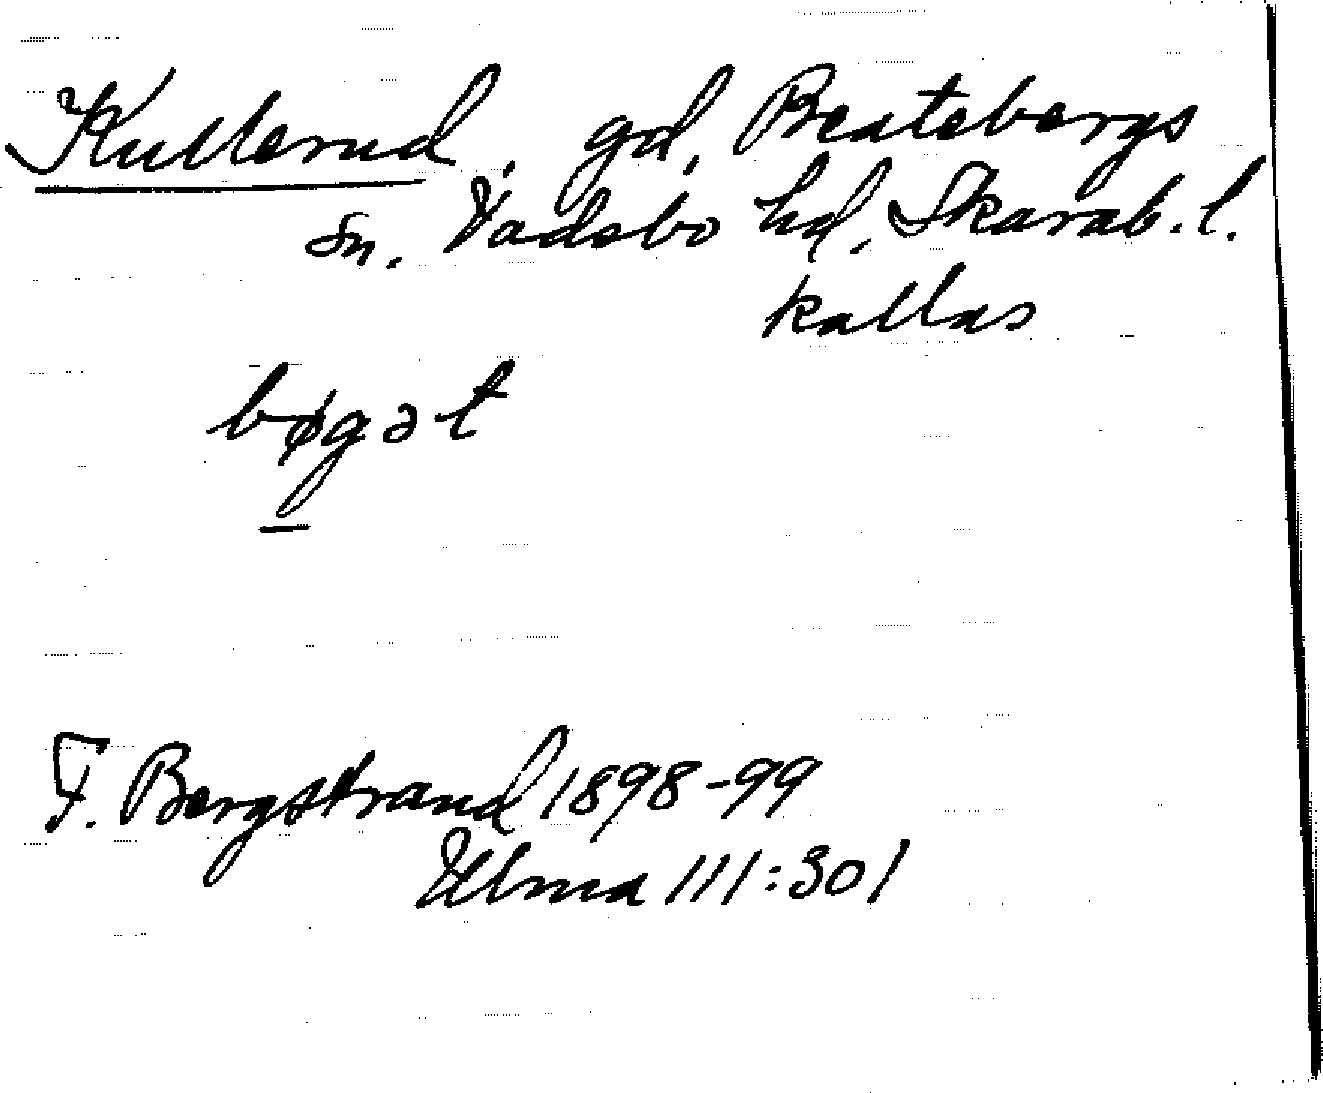 Kullerud, gd, Beatebergs
sn. Vadsbo hd, Skarab. l.
kallas
bøgət
F. Bergstrand 1898-99
Ulma 111:301